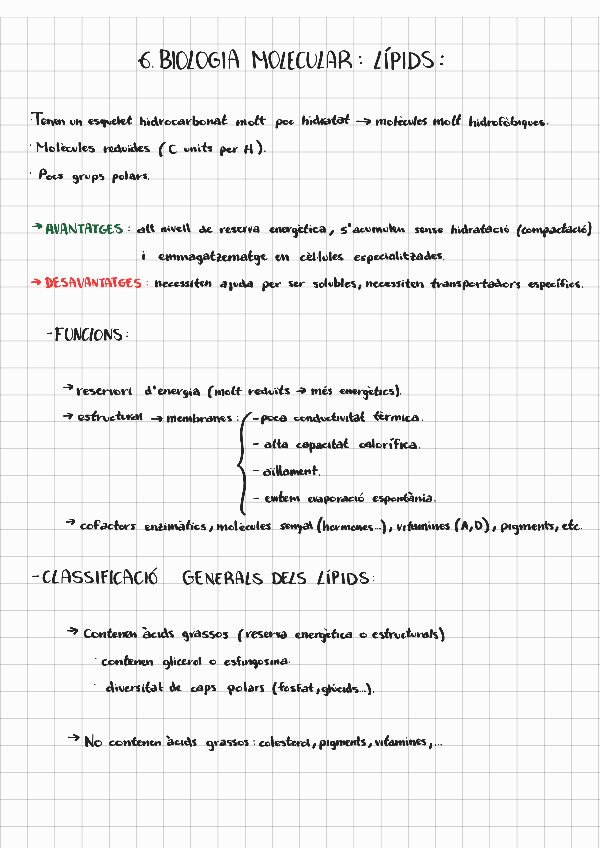 6. BIOLOGIA MOLECULAR: LÍPIDS:
· Tenen un esquelet hidrocarbonat molt poc hidratat → molècules molt hidrofòbiques.
· Molècules reduïdes (C units per H).
· Pocs grups polars.
→ AVANTATGES: alt nivell de reserva energètica, s'acumulen sense hidratació (compactació)
i emmagatzematge en cèl·lules especialitzades.
→ DESAVANTATGES: necessiten ajuda per ser solubles, necessiten transportadors específics.
- FUNCIONS:
→ reservori d'energia (molt reduïts → més energètics).
→ estructural → membranes: - poca conductivitat tèrmica.
- alta capacitat calorífica.
- aïllament.
- evitem evaporació espontània.
→ cofactors enzimàtics, molècules senyal (hormones...), vitamines (A,D), pigments, etc.
- CLASSIFICACIÓ GENERALS DELS LÍPIDS:
→ Contenen àcids grassos (reserva energètica o estructurals)
· contenen glicerol o esfingosina.
· diversitat de caps polars (fosfat, glúcids...).
→ No contenen àcids grassos: colesterol, pigments, vitamines,...